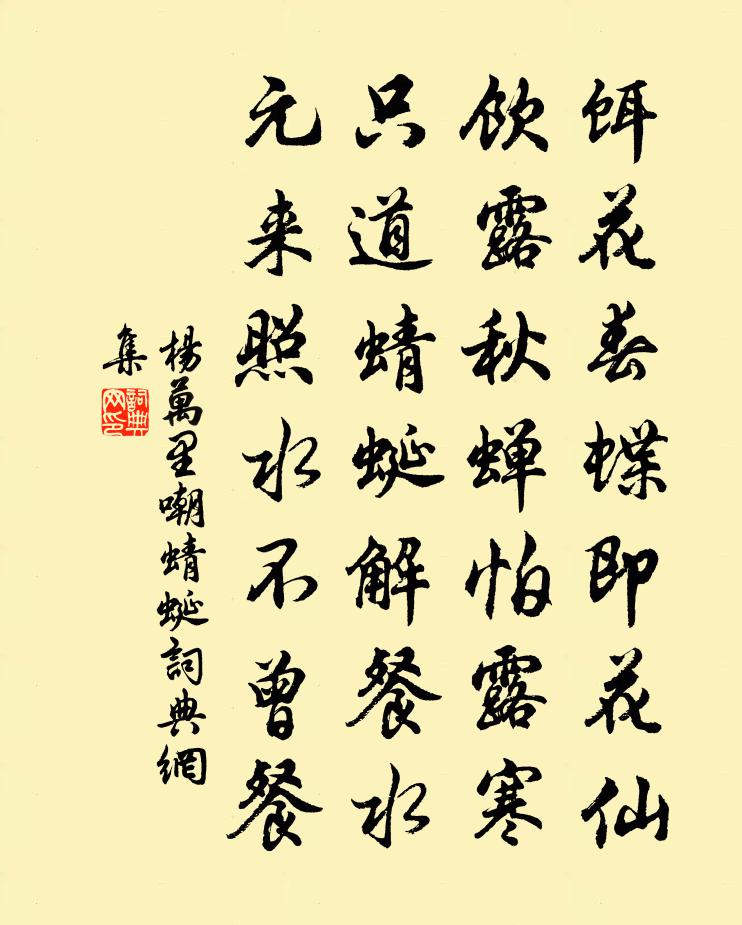 饵花春蝶即花仙
饮露秋蝉怕露寒
只道蜻蜓解餐水
元来照水不曾餐
楊萬里嘲蜻蜓詞典網
集
詞典
网印